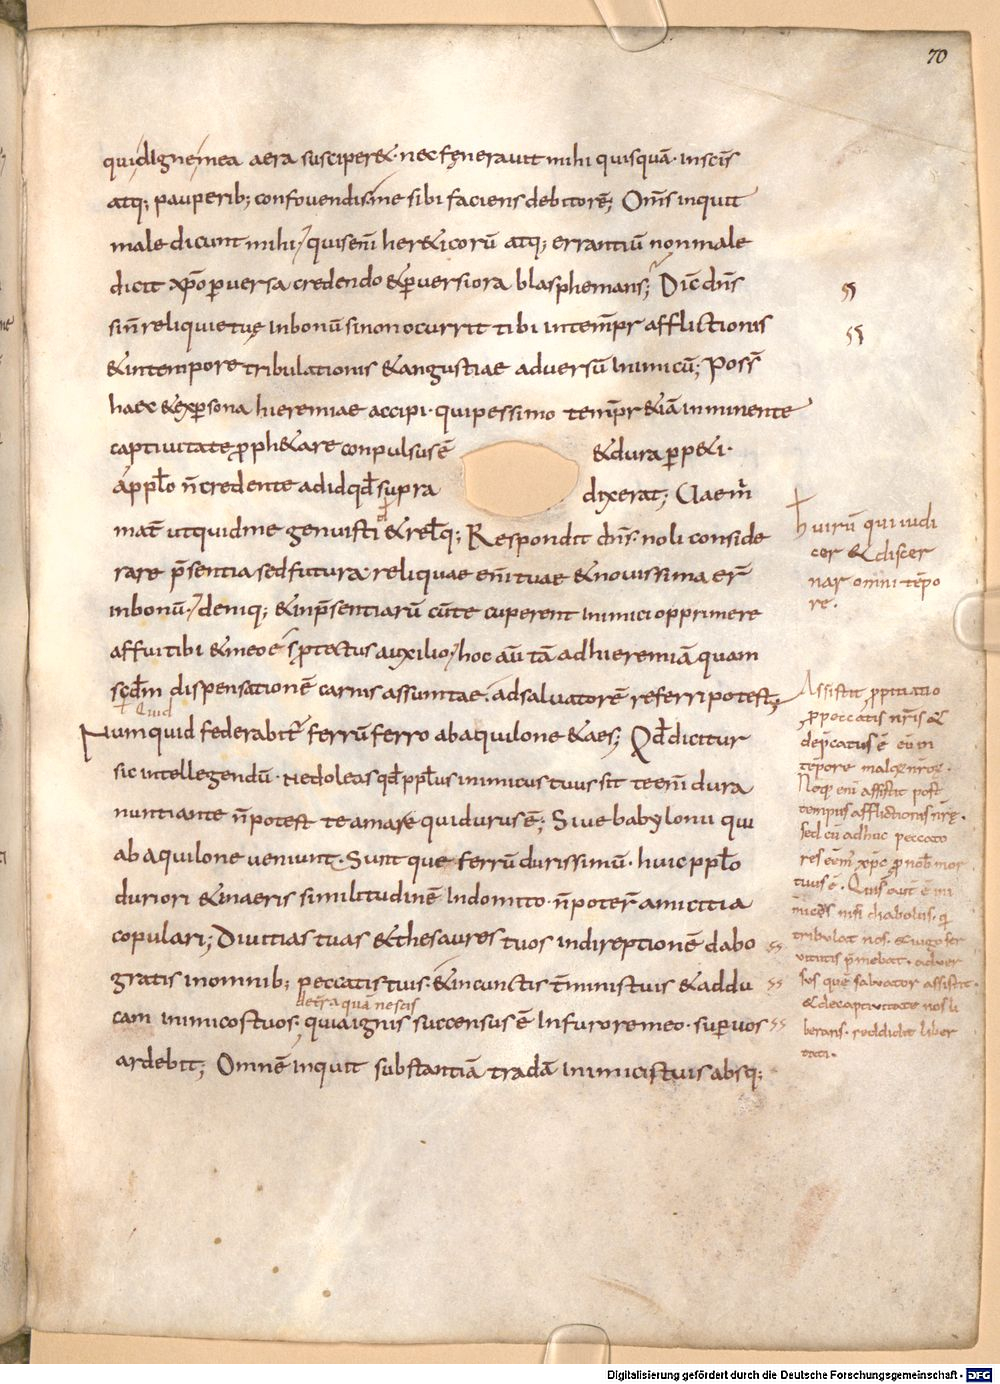 70
qui digne mea aera susciper&. nec fęnerauit mihi quisquā. inscīs
atq; pauperib; confouendis me sibi faciens debitorē; Om̄s inquit
male dicunt mihi, quis enī her&icorū atq; errantiū non male
dicit xp̄o puersa credendo & puersiora blasphemans; Dic̄ dn̄s
sin̄ reliquie tuę inbonū si non ocurri tibi intemp̄r afflictionis
& intempore tribulationis & angustiae aduersū inimicū; Poss̄
haec & exp̄sona hieremiae accipi. qui pessimo temp̄r & iā inminente
captiuitate proph&are conpulsus ē & dura pp&i.
a ppl̄o n̄ credente adid qd̄ supra dixerat; Uae m̄
mat̄ ut quid me genuisti & rel̄q; Respondit dn̄s. noli conside
rare p̄sentia sed futura. reliquae enī tuae & nouissima er̄
inbonū. deniq; & inp̄sentiarū cū te cuperent inimici opprimere
affui tibi & meo es ptectus auxilio, hoc aū tā adhieremiā quam
scd̄m dispensationē carnis assumtae. ad saluatorē referri potest;
Quid
Numquid federabit̄ ferrū ferro abaquilone & aes; Qd̄ dicitur
sic intellegendū. Ne doleas qd̄ ppl̄us inimicus tuus sit te enī dura
nuntiante n̄ potest te amare qui durus ē; Siue babylonii qui
ab aquilone ueniunt. Sunt que ferrū durissimū. huic ppl̄o
duriori & inaeris similitudinē indomito. n̄ poter̄ amicitia
copulari; Diuitias tuas & thesauros tuos indireptionē dabo
gratis inomnib; peccatis tuis. & incunctis t̄minis tuis & addu
de terra quā nescis
cam inimicos tuos. quia ignis succensus ē Infurore meo. sup uos
ardebit; Omnē inquit substantiā tradā inimicis tuis absq;
h uirū qui iudi
cer & discer
nar omni tēpo
re.
Assistit ppitiatio
p peccatis nr̄is &
dep̄catus ē eum
tēpore
Neq; enī assistit post
tempus afflictionis nr̄ę.
sed cū adhuc peccato
res eēm xp̄c p nob̄ mor
tuus ē. Quis aut̄ ē ini
nisi diabolus. q
tribulat nos. &
p̄mebat. aduer
sus quē saluator assistit.
& de captiuitate nos li
berans. reddidit liber
tati.
Digitalisierung gefördert durch die Deutsche Forschungsgemeinschaft - DFG